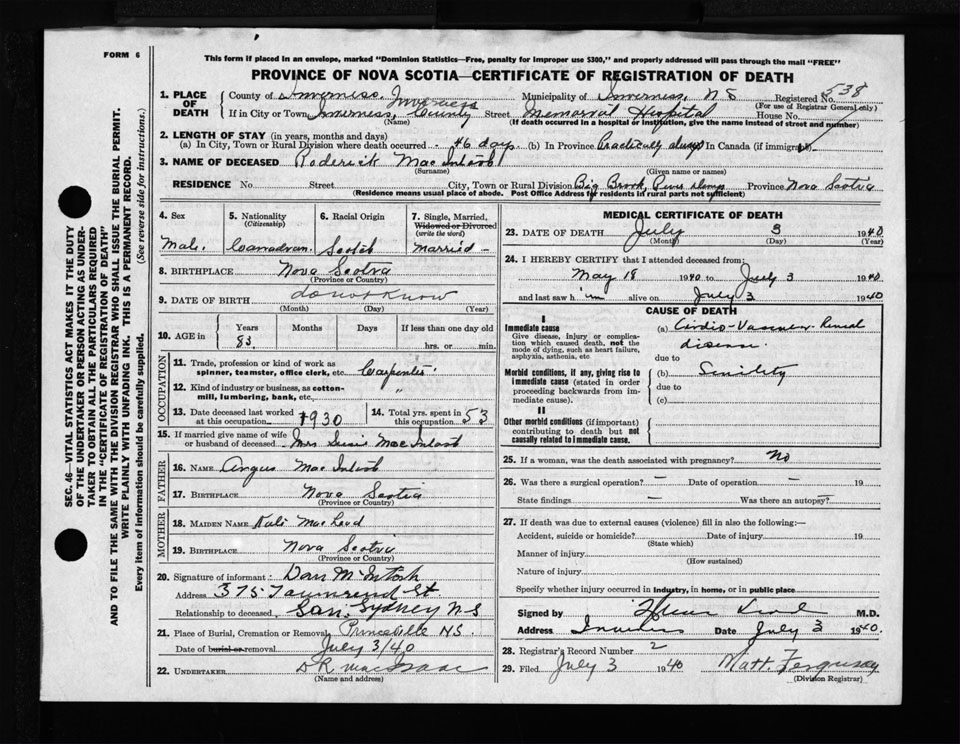 FORM 6
This form if placed in an envelope, marked "Dominion Statistics—Free, penalty for improper use $300," and properly addressed will pass through the mail "FREE"
PROVINCE OF NOVA SCOTIA—CERTIFICATE OF REGISTRATION OF DEATH
1. PLACE OF DEATH
County of Inverness. Municipality of Inverness, N S Registered No. 538
(For use of Registrar General only)
If in City or Town Inverness, Inverness County Street Memorial Hospital House No.
(Name) (If death occurred in a hospital or institution, give the name instead of street and number)
2. LENGTH OF STAY (in years, months and days)
(a) In City, Town or Rural Division where death occurred 46 days (b) In Province Practically always In Canada (if immigrant)
3. NAME OF DECEASED Roderick MacIntosh
(Surname) (Given name or names)
RESIDENCE No. Street City, Town or Rural Division Big Brook, River Denys Province Nova Scotia
(Residence means usual place of abode. Post Office Address for residents in rural parts not sufficient)
4. Sex
Male.
5. Nationality
(Citizenship)
Canadian.
6. Racial Origin
Scotch
7. Single, Married, Widowed or Divorced
(write the word)
Married —
8. BIRTHPLACE Nova Scotia
(Province or Country)
9. DATE OF BIRTH do not know
(Month) (Day) (Year)
10. AGE in Years Months Days If less than one day old
83 hrs. or min.
OCCUPATION
11. Trade, profession or kind of work as
spinner, teamster, office clerk, etc. Carpenter
12. Kind of industry or business, as cotton-
mill, lumbering, bank, etc. "
13. Date deceased last worked
at this occupation 1930
14. Total yrs. spent in
this occupation 53
15. If married give name of wife
or husband of deceased Mrs Susie MacIntosh
FATHER
16. NAME Angus MacIntosh
17. BIRTHPLACE Nova Scotia
(Province or Country)
MOTHER
18. MAIDEN NAME MacLeod
19. BIRTHPLACE Nova Scotia
(Province or Country)
20. Signature of informant: Dan McIntosh
Address 375 Townsend St
Relationship to deceased Son. Sydney N S
21. Place of Burial, Cremation or Removal Princeville N.S.
Date of burial or removal July 3/40
22. UNDERTAKER D R MacIsaac
(Name and address)
MEDICAL CERTIFICATE OF DEATH
23. DATE OF DEATH July 3 1940
(Month) (Day) (Year)
24. I HEREBY CERTIFY that I attended deceased from:
May 18 1940 to July 3 1940
and last saw h im alive on July 3 1940
CAUSE OF DEATH
I
Immediate cause
Give disease, injury or complication which caused death, not the mode of dying, such as heart failure, asphyxia, asthenia, etc
(a) Cardio-Vascular-Renal
disease.
due to
Morbid conditions, if any, giving rise to immediate cause (stated in order proceeding backwards from immediate cause).
(b) Senility
due to
(c)
II
Other morbid conditions (if important) contributing to death but not causally related to immediate cause.
25. If a woman, was the death associated with pregnancy? No
26. Was there a surgical operation? — Date of operation — 19
State findings — Was there an autopsy? —
27. If death was due to external causes (violence) fill in also the following:—
Accident, suicide or homicide? Date of injury 19
(State which)
Manner of injury
(How sustained)
Nature of injury
Specify whether injury occurred in Industry, in home, or in public place
Signed by M.D.
Address Inverness Date July 3 1940.
28. Registrar's Record Number 2
29. Filed July 3 1940 Matt. Ferguson
(Division Registrar)
SEC. 46—VITAL STATISTICS ACT MAKES IT THE DUTY
OF THE UNDERTAKER OR PERSON ACTING AS UNDER-
TAKER TO OBTAIN ALL THE PARTICULARS REQUIRED
IN THE "CERTIFICATE OF REGISTRATION OF DEATH"
AND TO FILE THE SAME WITH THE DIVISION REGISTRAR WHO SHALL ISSUE THE BURIAL PERMIT.
WRITE PLAINLY WITH UNFADING INK. THIS IS A PERMANENT RECORD.
Every item of information should be carefully supplied. (See reverse side for instructions.)